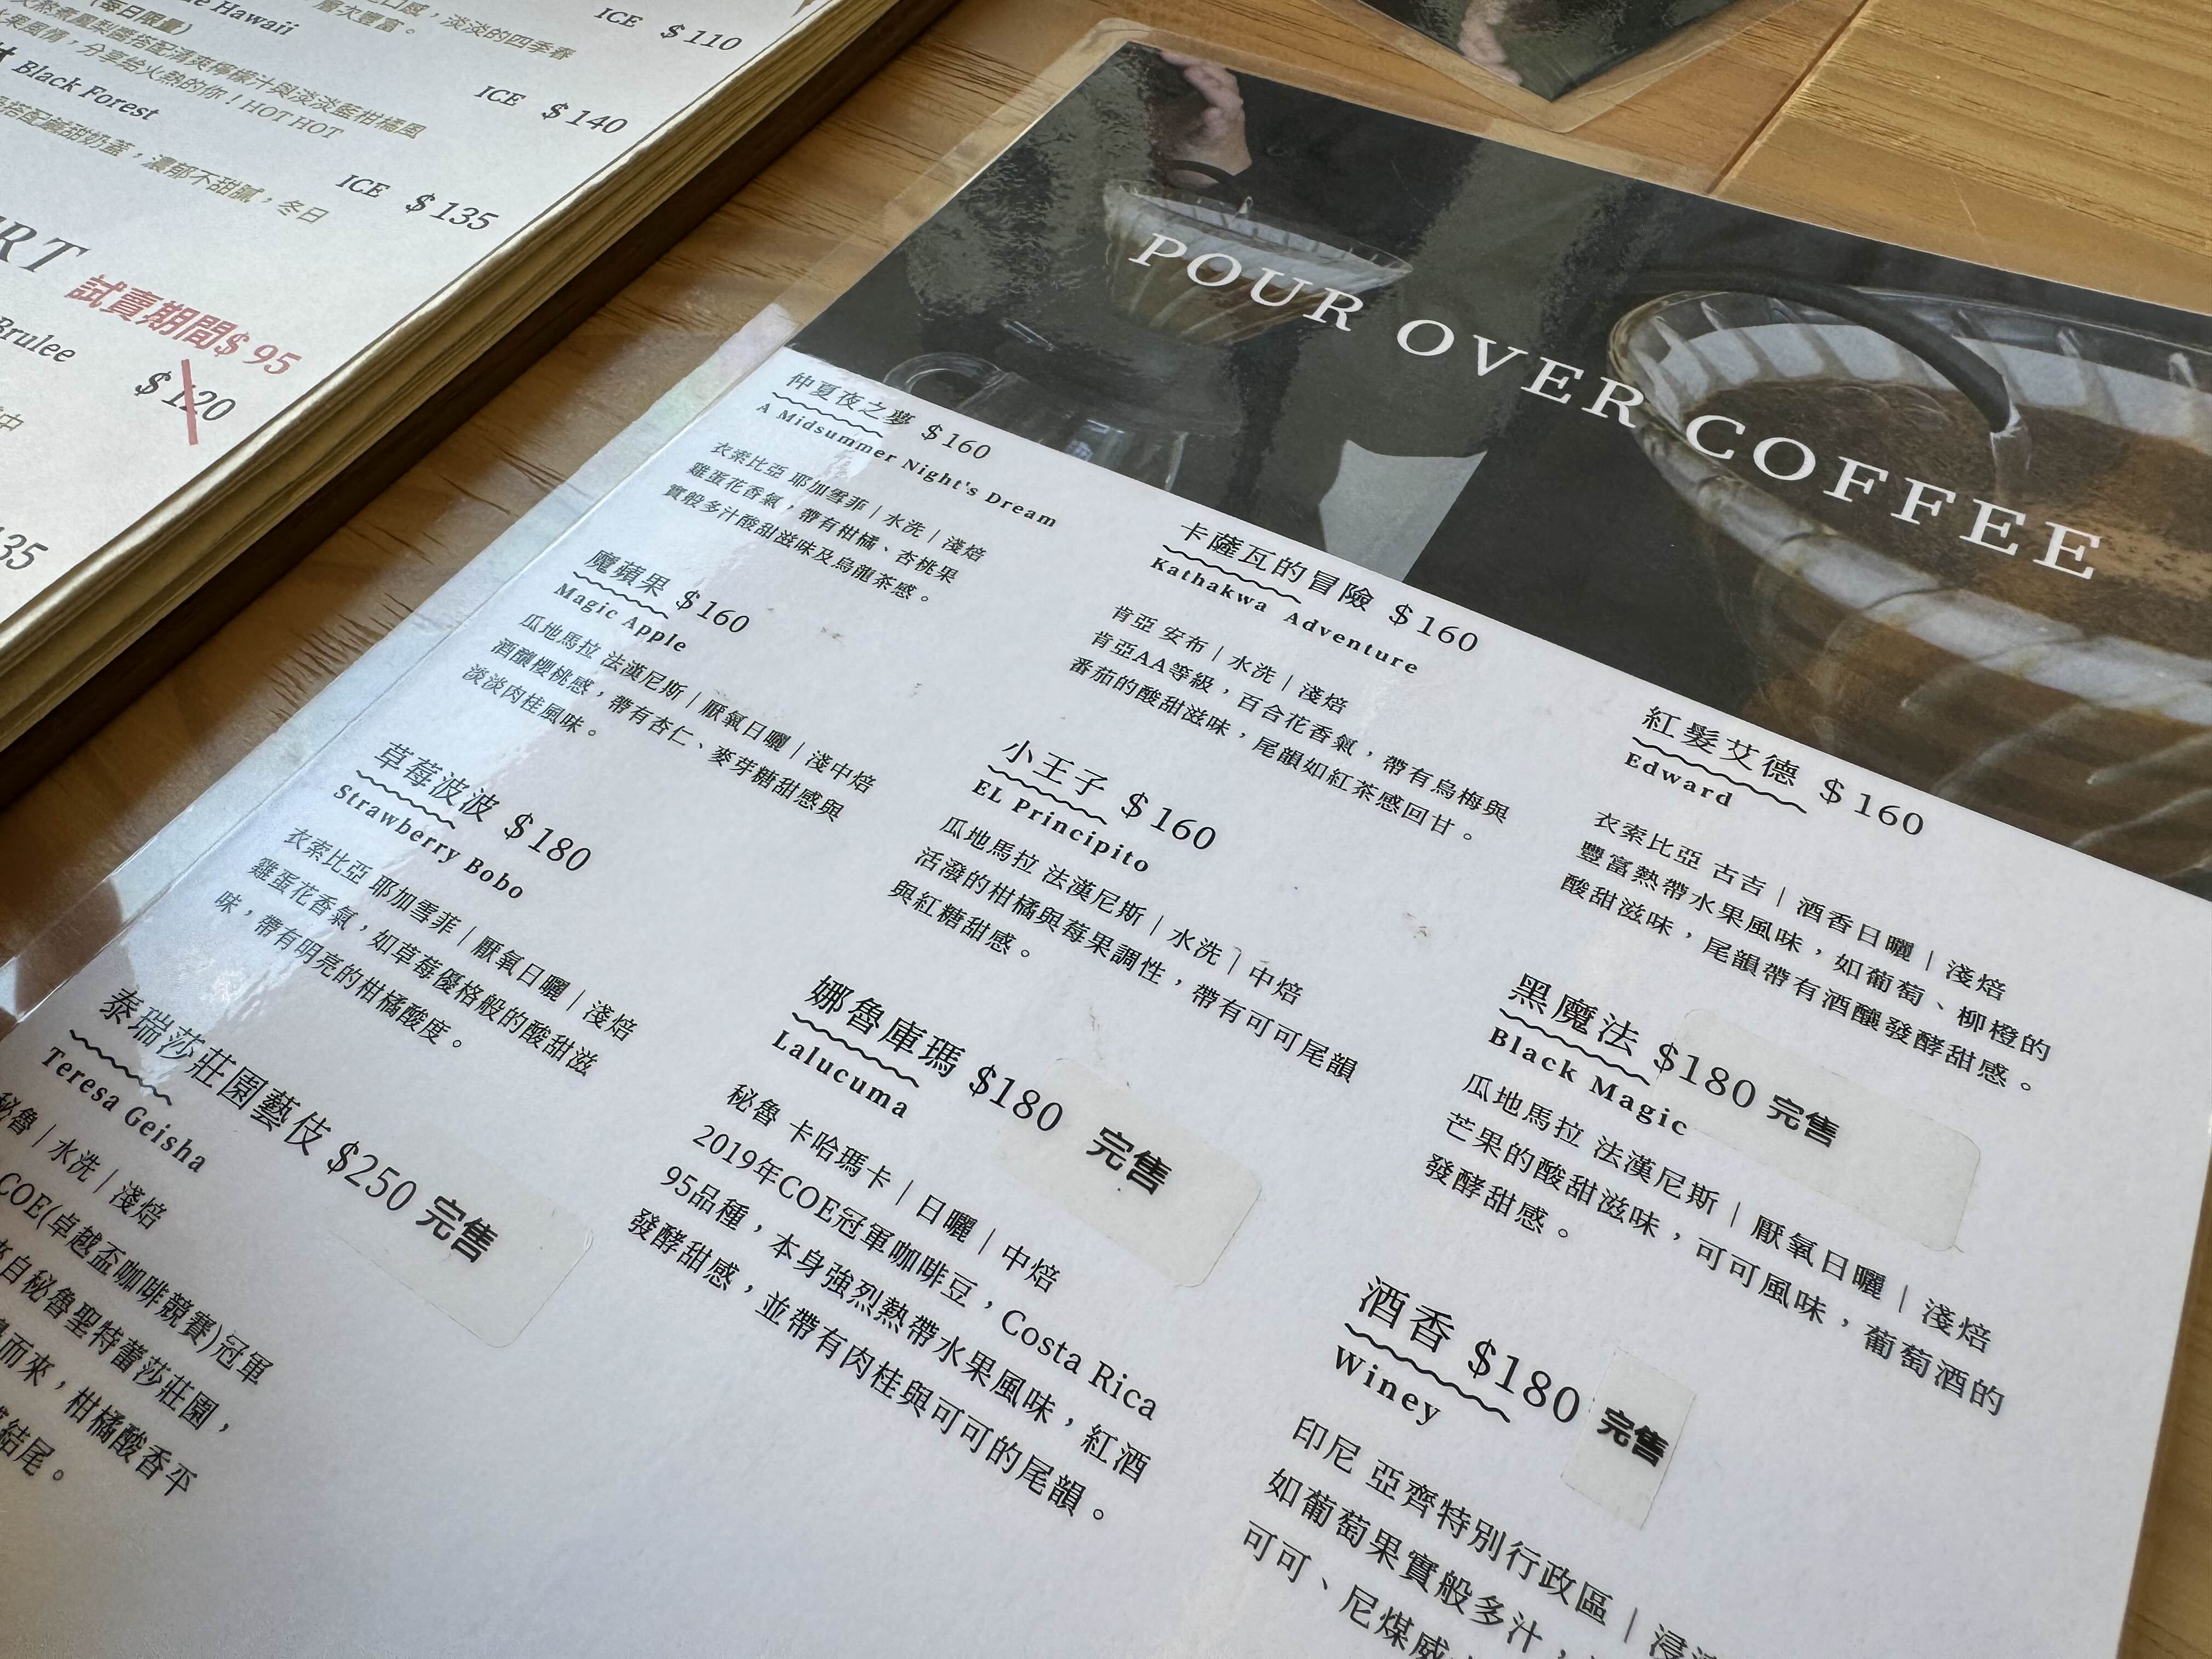 Hawaii
(每日限量)
層次豐富。
淡淡的四季春
ICE $110
搭配清爽檸檬汁與淡淡藍柑橘風
風情，分享給火熱的你！HOT HOT
ICE $140
Black Forest
搭配鹹甜奶蓋，濃郁不甜膩，冬日
ICE $135
試賣期間$95
Brulee
$120
中
POUR OVER COFFEE
仲夏夜之夢 $160
A Midsummer Night's Dream
衣索比亞 耶加雪菲｜水洗｜淺焙
雞蛋花香氣，帶有柑橘、杏桃果
實般多汁酸甜滋味及烏龍茶感。
魔蘋果 $160
Magic Apple
瓜地馬拉 法漢尼斯｜厭氧日曬｜淺中焙
酒釀櫻桃感，帶有杏仁、麥芽糖甜感與
淡淡肉桂風味。
草莓波波 $180
Strawberry Bobo
衣索比亞 耶加雪菲｜厭氧日曬｜淺焙
雞蛋花香氣，如草莓優格般的酸甜滋
味，帶有明亮的柑橘酸度。
泰瑞莎莊園藝伎 $250 完售
Teresa Geisha
秘魯｜水洗｜淺焙
COE(卓越盃咖啡競賽)冠軍
自秘魯聖特蕾莎莊園，
而來，柑橘酸香平
結尾。
卡薩瓦的冒險 $160
Kathakwa Adventure
肯亞 安布｜水洗｜淺焙
肯亞AA等級，百合花香氣，帶有烏梅與
番茄的酸甜滋味，尾韻如紅茶感回甘。
小王子 $160
EL Principito
瓜地馬拉 法漢尼斯｜水洗｜中焙
活潑的柑橘與莓果調性，帶有可可尾韻
與紅糖甜感。
娜魯庫瑪 $180 完售
Lalucuma
秘魯 卡哈瑪卡｜日曬｜中焙
2019年COE冠軍咖啡豆，Costa Rica
95品種，本身強烈熱帶水果風味，紅酒
發酵甜感，並帶有肉桂與可可的尾韻。
紅髮艾德 $160
Edward
衣索比亞 古吉｜酒香日曬｜淺焙
豐富熱帶水果風味，如葡萄、柳橙的
酸甜滋味，尾韻帶有酒釀發酵甜感。
黑魔法 $180 完售
Black Magic
瓜地馬拉 法漢尼斯｜厭氧日曬｜淺焙
芒果的酸甜滋味，可可風味，葡萄酒的
發酵甜感。
酒香 $180 完售
Winey
印尼 亞齊特別行政區｜浸
如葡萄果實般多汁，
可可、尼煤威